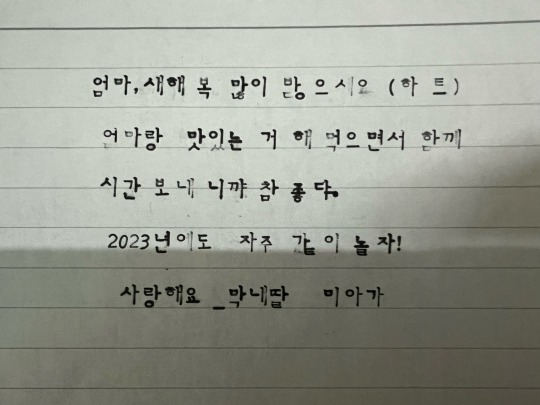 엄마, 새해 복 많이 받으시오 (하트)
엄마랑 맛있는 거 해 먹으면서 함께
시간 보내 니까 참 좋다.
2023년에도 자주 같이 놀자!
사랑해요 _막내딸 미아가